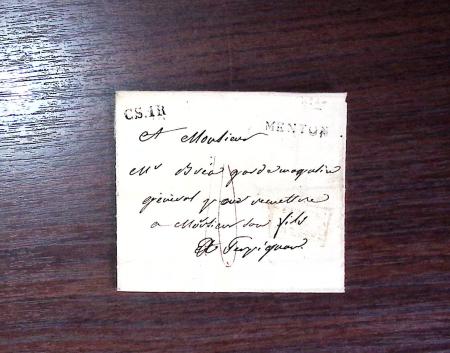 C.S.1R
MENTON
A Monsieur
Mr Bréa garde magasin
général pour remettre
a Monsieur son fils
A Perpignan